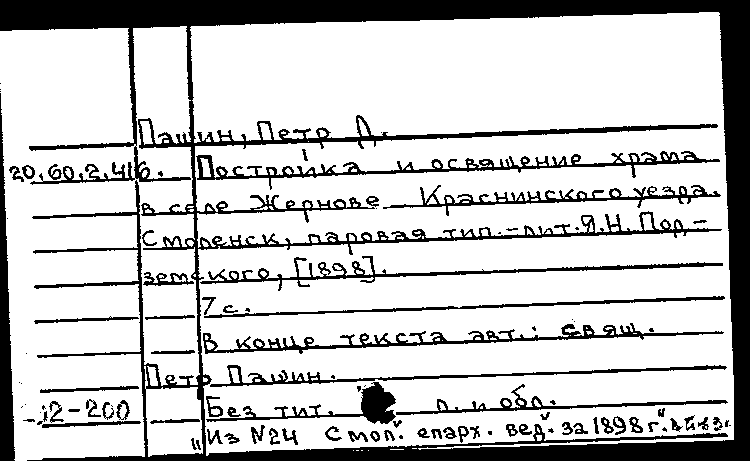 Пашин, Петр Д.
20.60.2.416. Постройка и освящение храма
в селе Жернове Краснинского уезда.
Смоленск, паровая тип.-лит. Я.Н. Под-
земского, [1898].
7 с.
В конце текста авт.: свящ.
Петр Пашин.
12-200 Без тит. л. и обл.
"Из N24 Смол. епарх. вед. за 1898 г."